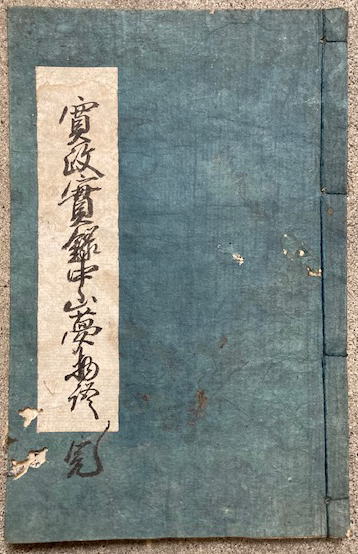 寳政實録中山夢物語 完